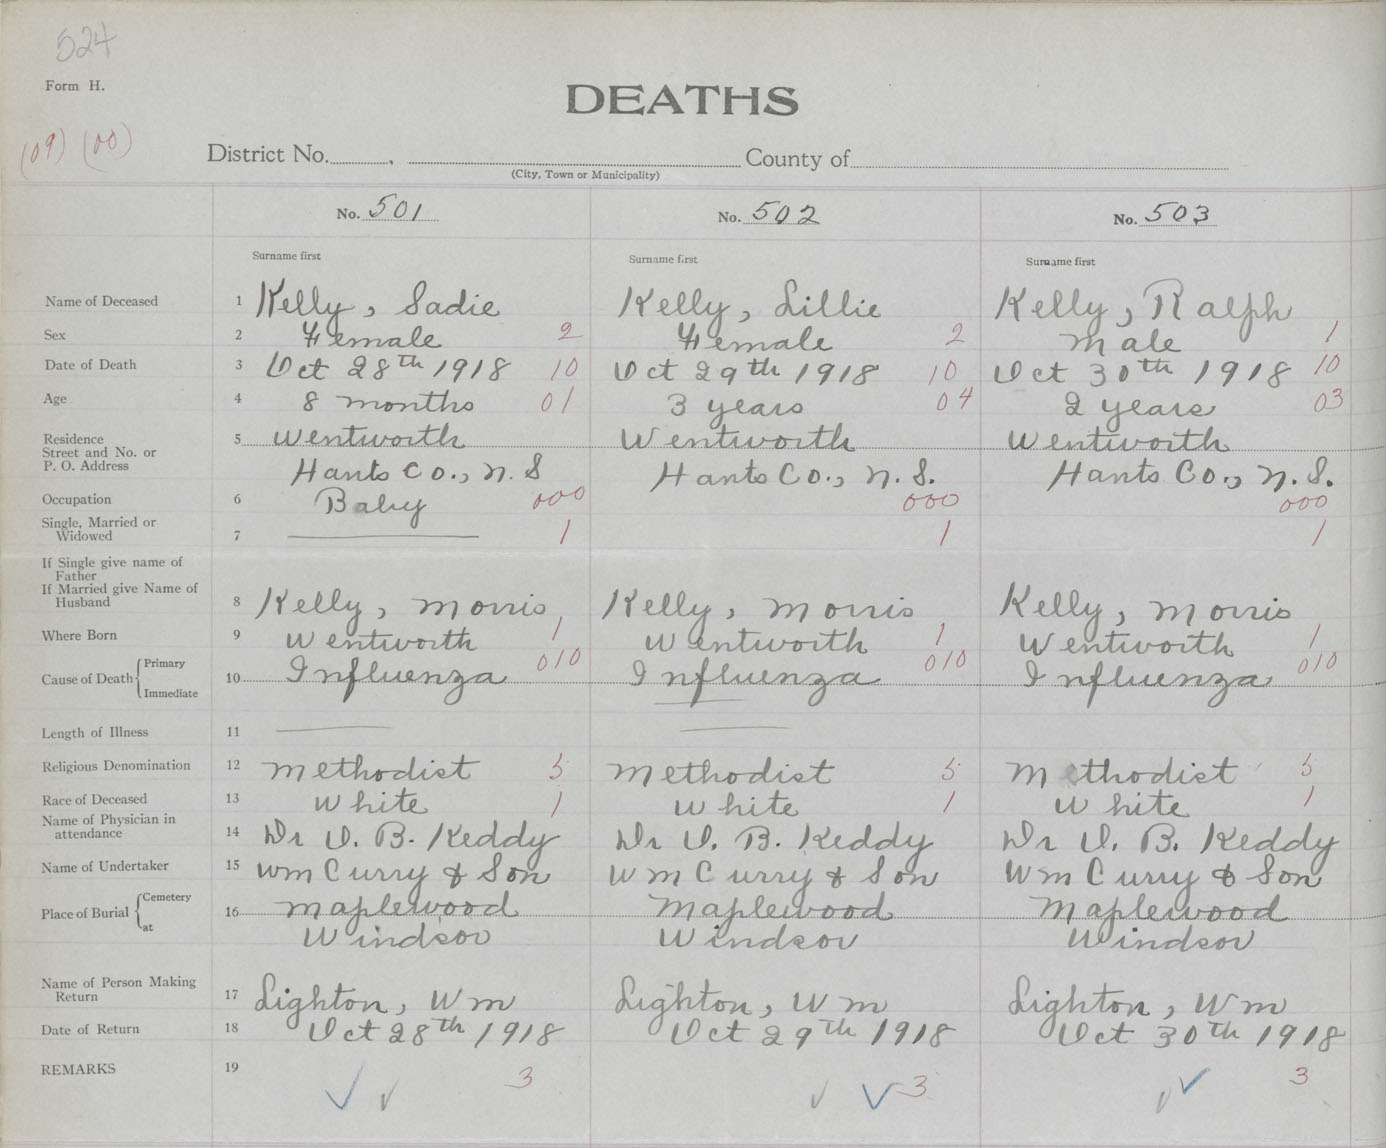 524
Form H.
DEATHS
(09) (00)
District No. , County of
(City, Town or Municipality)
No. 501 No. 502 No. 503
Surname first Surname first Surname first
Name of Deceased 1 Kelly, Sadie Kelly, Lillie Kelly, Ralph
Sex 2 Female 2 Female 2 Male 1
Date of Death 3 Oct 28th 1918 10 Oct 29th 1918 10 Oct 30th 1918 10
Age 4 8 months 01 3 years 04 2 years 03
Residence
Street and No. or
P. O. Address
5 Wentworth Wentworth Wentworth
Hants Co., N.S Hants Co., N.S. Hants Co., N.S.
Occupation 6 Baby 000 000 000
Single, Married or
Widowed 7 1 1 1
If Single give name of
Father
If Married give Name of
Husband 8 Kelly, Morris Kelly, Morris Kelly, Morris
Where Born 9 Wentworth 1 Wentworth 1 Wentworth 1
Cause of Death { Primary
Immediate
10 Influenza 010 Influenza 010 Influenza 010
Length of Illness 11
Religious Denomination 12 Methodist 5 Methodist 5 Methodist 5
Race of Deceased 13 White 1 White 1 White 1
Name of Physician in
attendance 14 Dr O. B. Keddy Dr O. B. Keddy Dr O. B. Keddy
Name of Undertaker 15 Wm Curry & Son Wm Curry & Son Wm Curry & Son
Place of Burial { Cemetery
at
16 Maplewood Maplewood Maplewood
Windsor Windsor Windsor
Name of Person Making
Return 17 Lighton, Wm Lighton, Wm Lighton, Wm
Date of Return 18 Oct 28th 1918 Oct 29th 1918 Oct 30th 1918
REMARKS 19 3 3 3